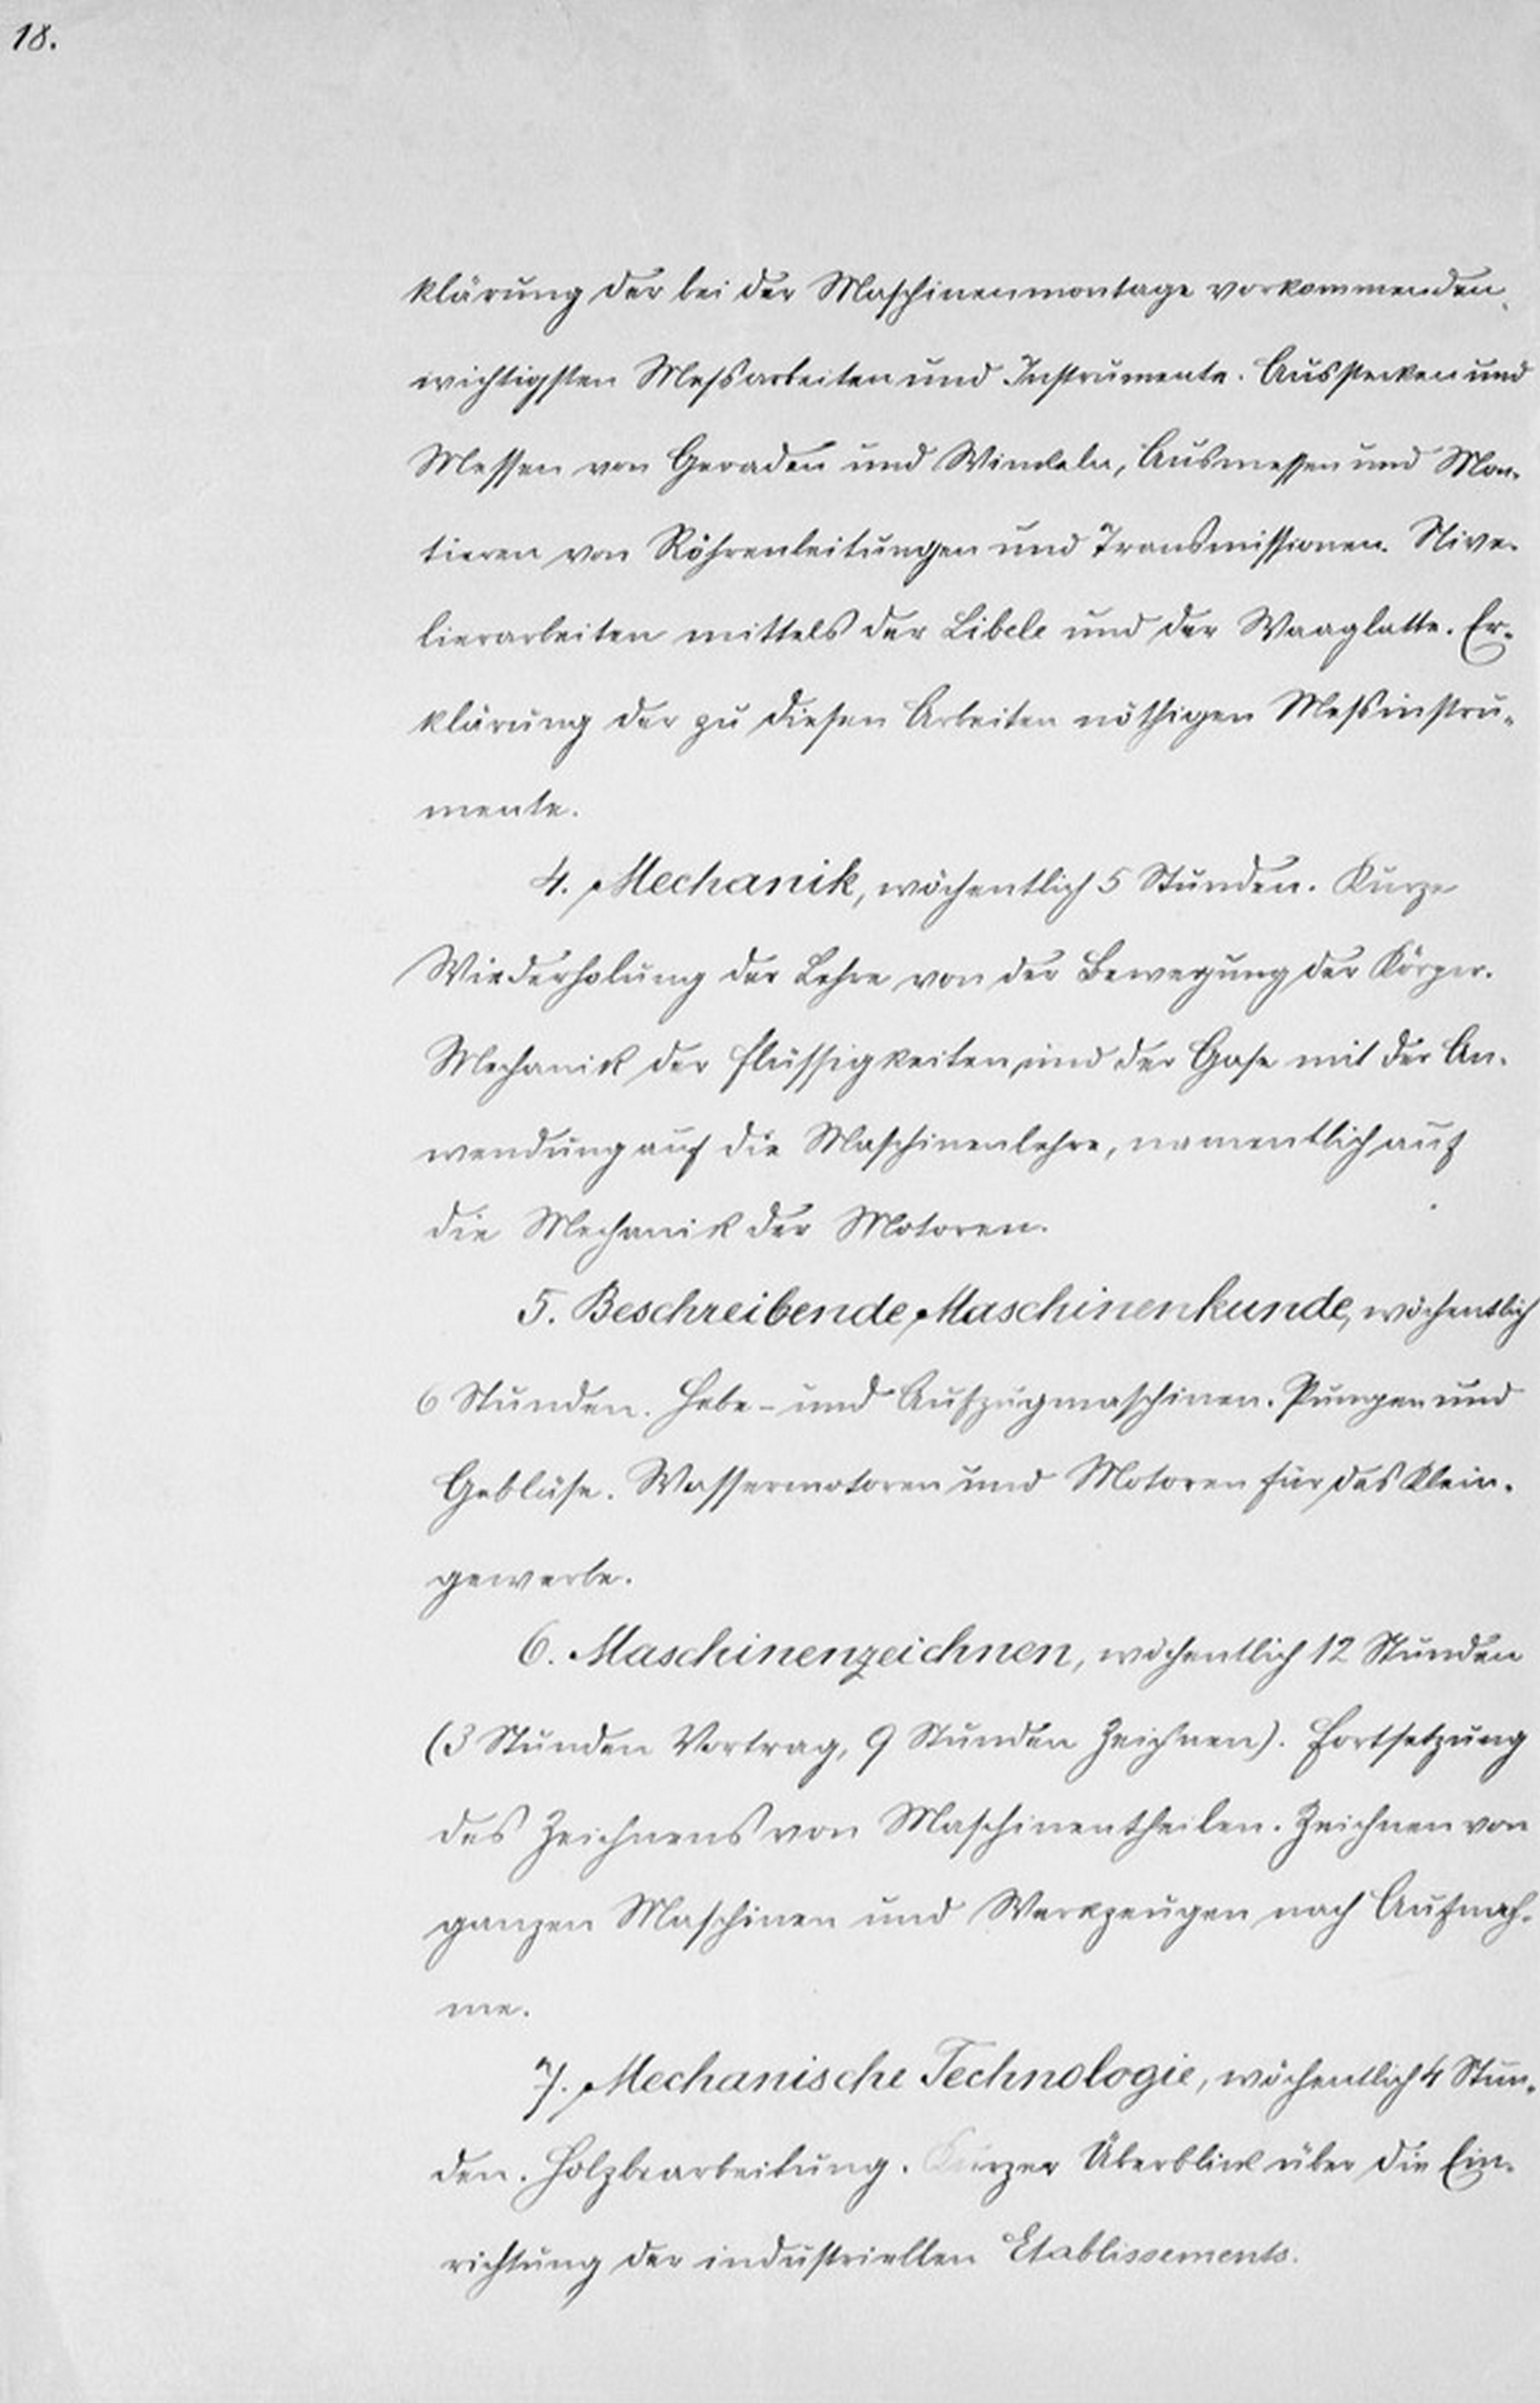 18.
klärung der bei der Maschinenmontage vorkommenden
wichtigsten Meßarbeiten und Instrumente. Ausstecken und
Messen von Geraden und Winkeln, Ausmessen und Mon-
tieren von Röhrenleitungen und Transmissionen. Nive-
lierarbeiten mittels der Libele und der Waaglatte. Er-
klärung der zu diesen Arbeiten nöthigen Meßinstru-
mente.
4. Mechanik, wöchentlich 5 Stunden. Kurze
Wiederholung der Lehre von der Bewegung der Körper.
Mechanik der Flüssigkeiten und der Gase mit der An-
wendung auf die Maschinenlehre, namentlich auf
die Mechanik der Motoren.
5. Beschreibende Maschinenkunde, wöchentlich
6 Stunden. Hebe- und Aufzugmaschinen. Pumpen und
Gebläse. Wassermotoren und Motoren für das Klein-
gewerbe.
6. Maschinenzeichnen, wöchentlich 12 Stunden
(3 Stunden Vortrag, 9 Stunden Zeichnen). Fortsetzung
des Zeichnens von Maschinentheilen. Zeichnen von
ganzen Maschinen und Werkzeugen nach Aufnah-
me.
7. Mechanische Technologie, wöchentlich 4 Stun-
den. Holzbearbeitung. Kurzer Überblick über die Ein-
richtung der industriellen Etablissements.